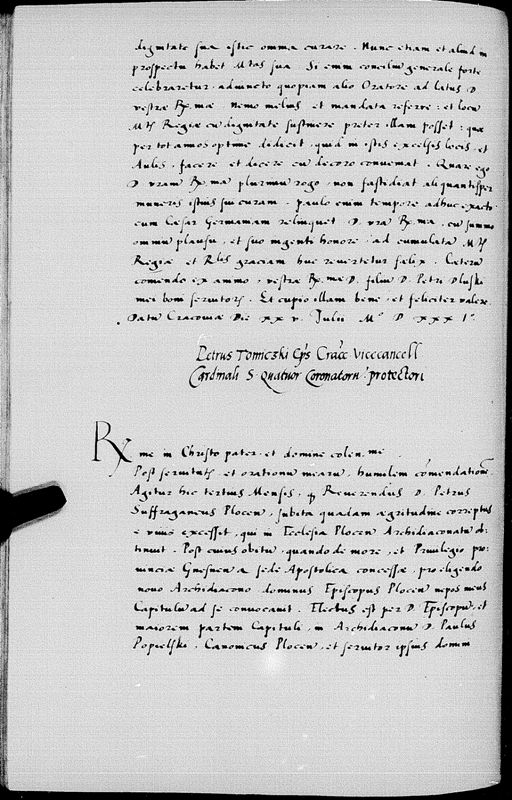 dignitate sua istic omnia curare. Nunc etiam et aliud in
prospectu habet Mtas sua. Si enim concilium generale forte
celebraretur, adiuncto quopiam alio Oratore ad latus D.
vestræ Rx.mæ nemo melius et mandata referre, et locum
Mtis Regiæ cu dignitate sustinere preter illam posset, quæ
per tot annos optime didicit, quid in istis excelsis locis, et
Aulis, facere et dicere cu decoro conveniat. Quare ego
D vram Rx.ma plurimu rogo, non fastidiat aliquantisper
muneris istius sui curam. paulo enim tempore adhuc exacto
cum Cesar Germaniam relinquet D. vra Rx.ma, cu summo
omniu plausu, et suo ingenti honore, ad cumulata Mtis
Regiæ et Rlis graciam huc revertetur felix. Ceteru
comendo ex animo, vestræ Rx.mæ D. filiu D. Petri Dluski
mei boni servitoris. Et cupio illam bene, et feliciter valere.
Datu Cracoviæ Die XX v. Julii M° D XXX I°
Petrus Tomiczki Eps Cracc Vicecancell
Cardinali S. Quatuor Coronatoru protectori
Rx me in Christo pater et domine colen. me.
Post servitutis et orationu mearu, humilem comendatione
Agitur hic tertius Mensis, Reverendus D. Petrus
Suffraganeus Plocen, subita quadam ægritudine correptus
e vivis excessit, qui in Ecclesia Plocen Archidiaconatu ob-
tinuit. Post cuius obitu, quando de more, et Privilegio pro-
vinciæ Gnesnen a sede Apostolica concessæ, pro eligendo
novo Archidiacono dominus Episcopus Plocen nepos meus
Capitulu ad se convocavit. Electus est per D. Episcopu, et
maiorem partem Capituli, in Archidiaconu D. Paulus
Popielski, Canonicus Plocen, et servitor ipsius domini